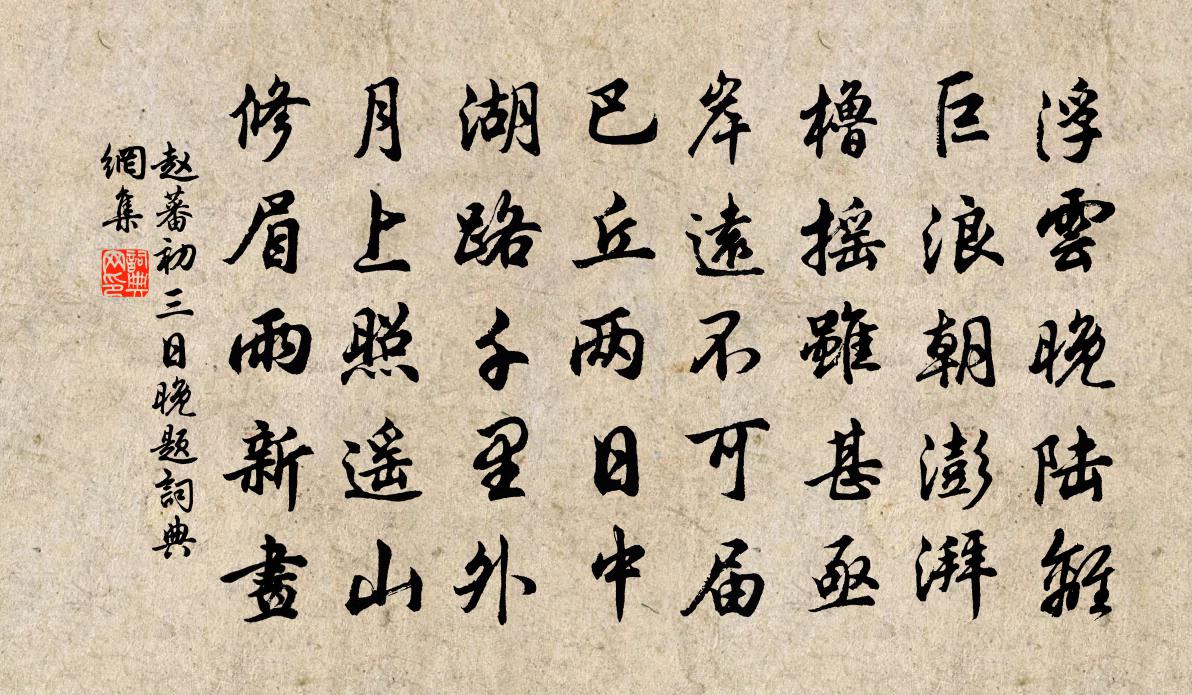 浮雲晚陆離
巨浪朝澎湃
櫓摇雖甚亟
岸遠不可届
巴丘两日中
湖路千里外
月上照遥山
修眉雨新畫
赵蕃初三日晚题詞典
網集
詞典網印